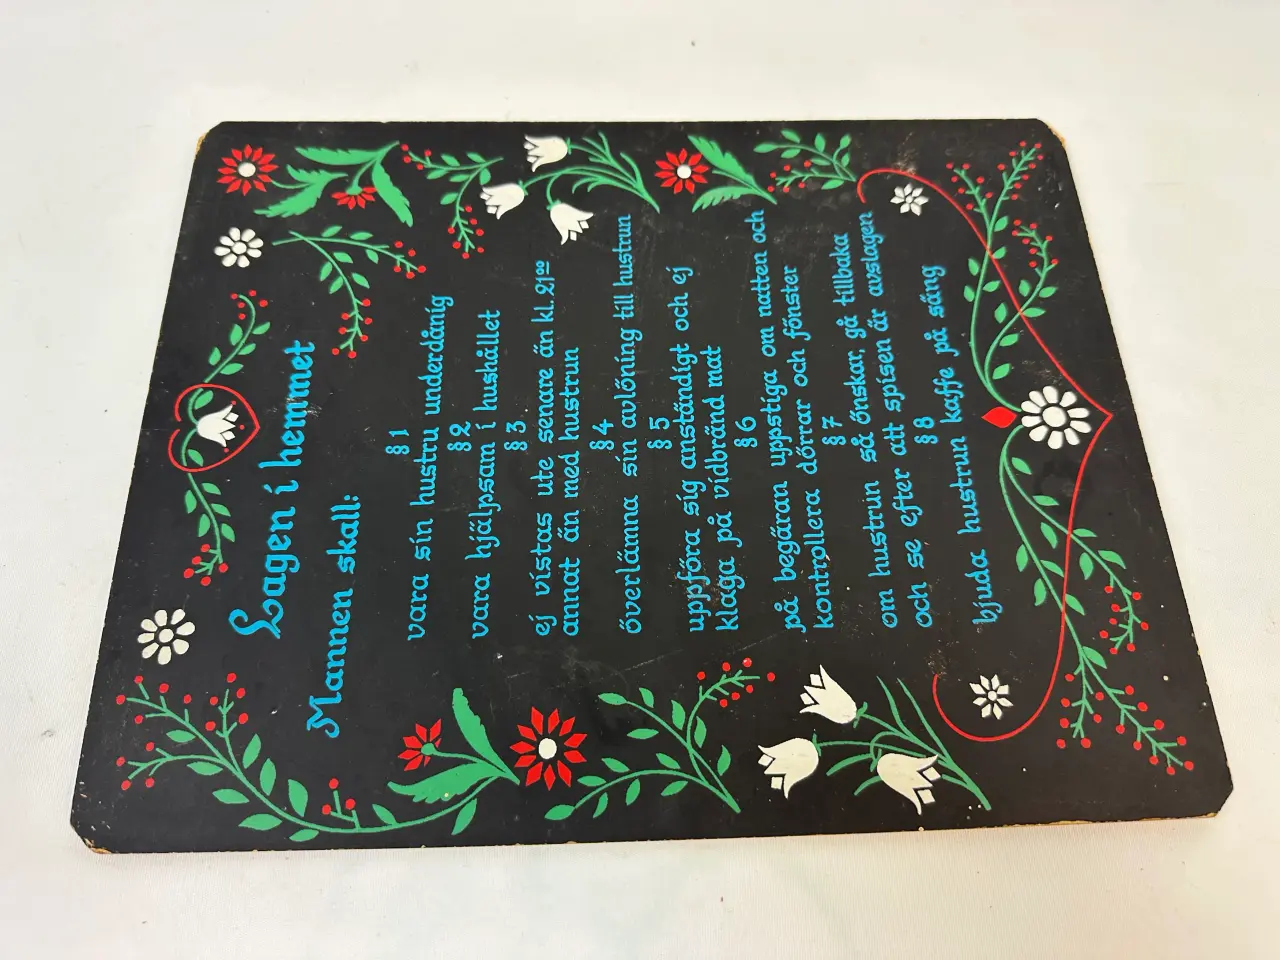 Lagen i hemmet
Mannen skall:
§ 1
vara sin hustru underdånig
§ 2
vara hjälpsam i hushållet
§ 3
ej vistas ute senare än kl. 21⁰⁰
annat än med hustrun
§ 4
överlämna sin avlöning till hustrun
§ 5
uppföra sig anständigt och ej
klaga på vidbränd mat
§ 6
på begäran uppstiga om natten och
kontrollera dörrar och fönster
§ 7
om hustrun så önskar, gå tillbaka
och se efter att spisen är avslagen
§ 8
bjuda hustrun kaffe på säng